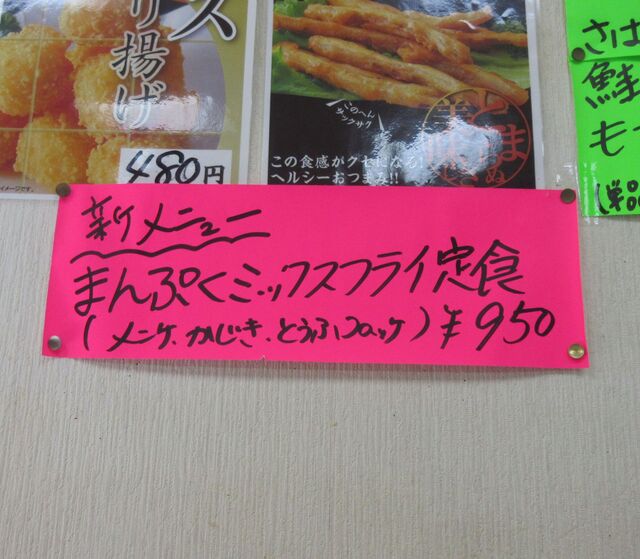 ス
り揚げ
480円
このへん
サックサク
この食感がクセになる!
ヘルシーおつまみ!!
さば
鮭
も
新メニュー
まんぷくミックスフライ定食
(メンチ、かじき、とうふコロッケ)¥950